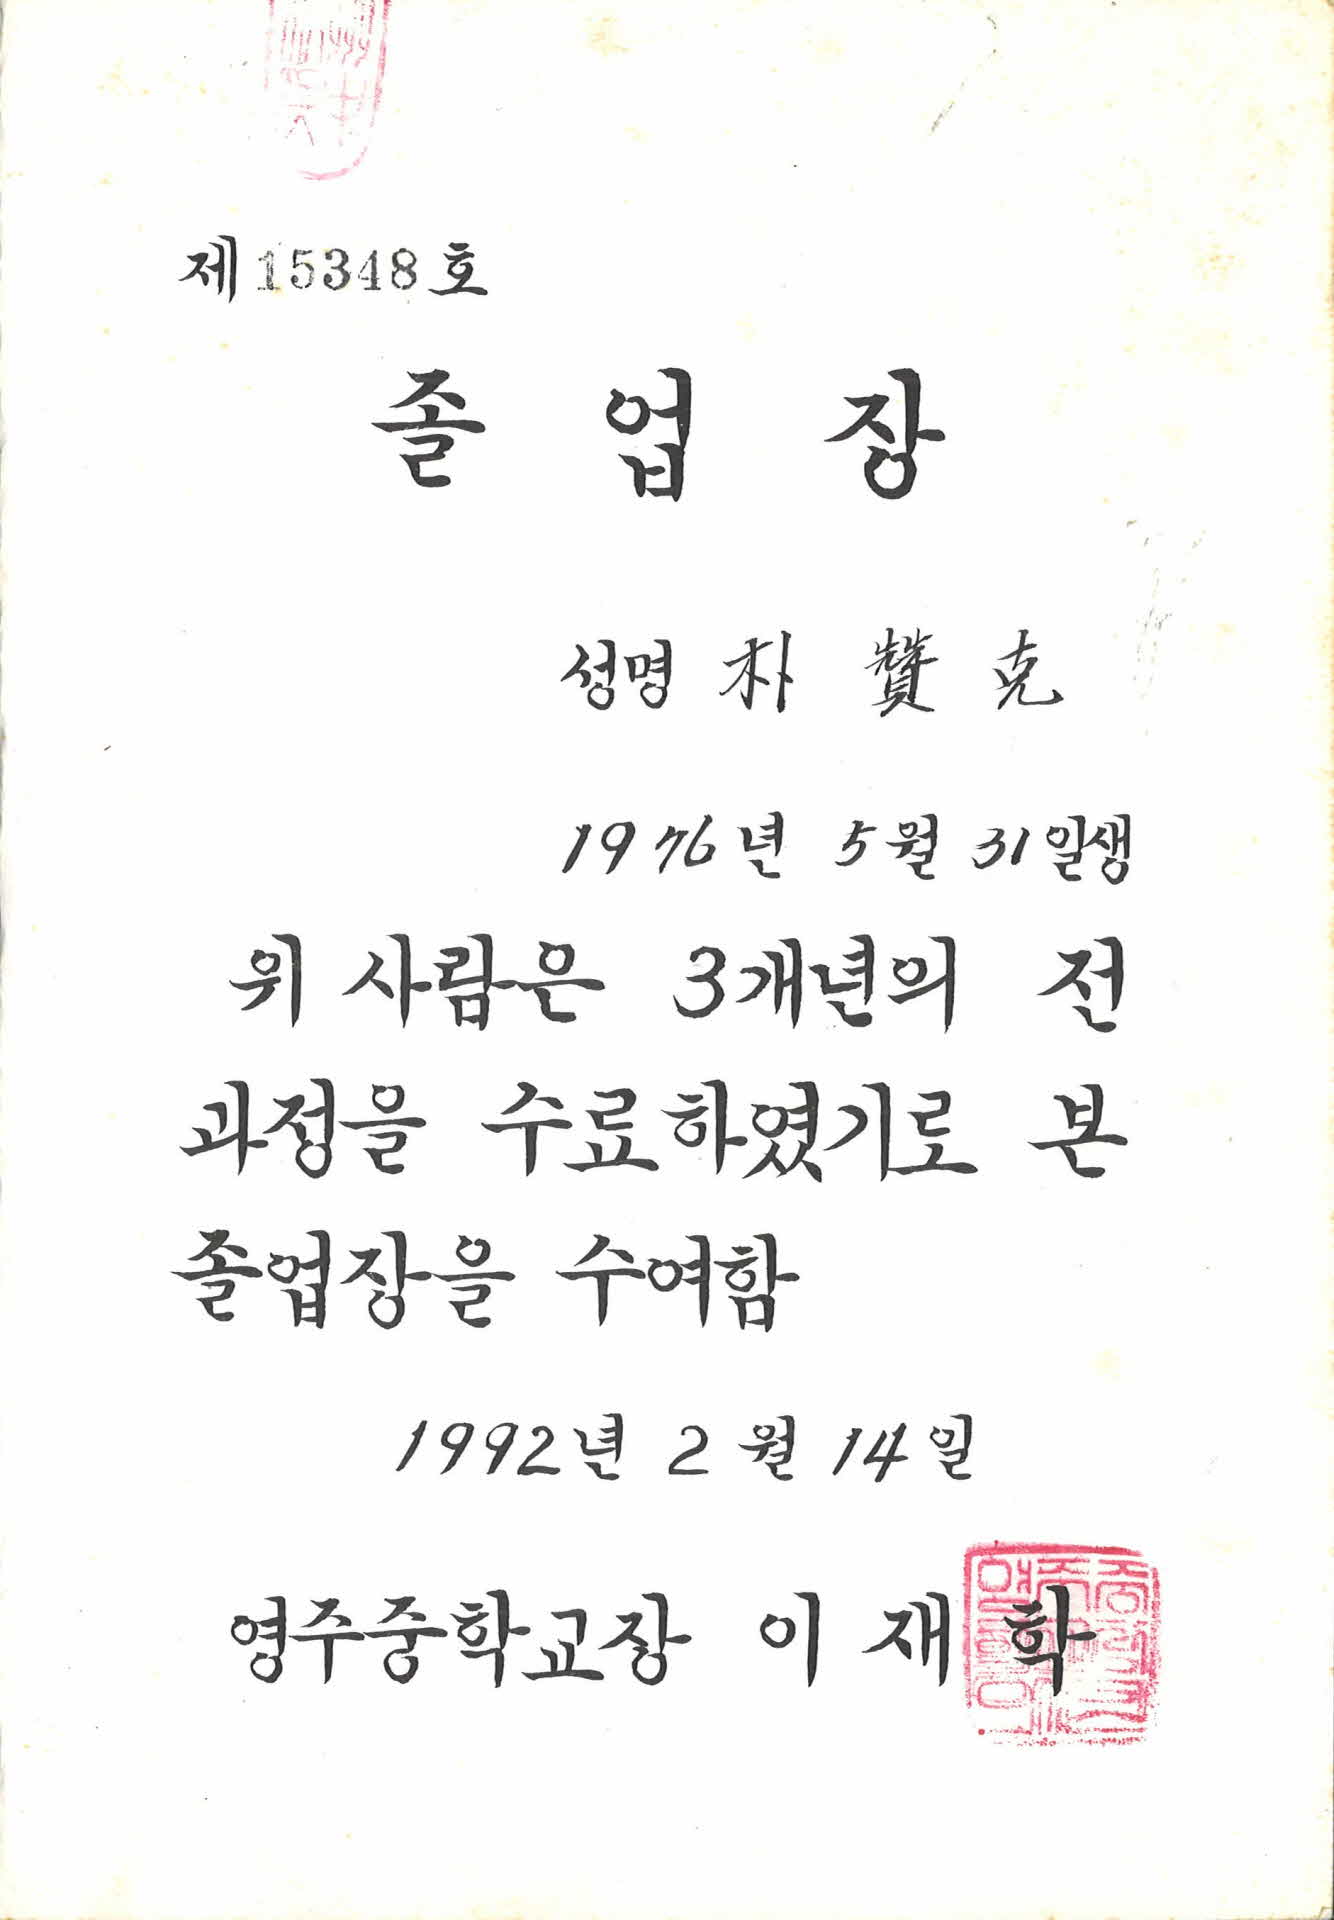 제 15348 호
졸 업 장
성명 朴 贊 克
1976년 5월 31일생
위 사람은 3개년의 전
과정을 수료하였기로 본
졸업장을 수여함
1992년 2월 14일
영주중학교장 이 재 학